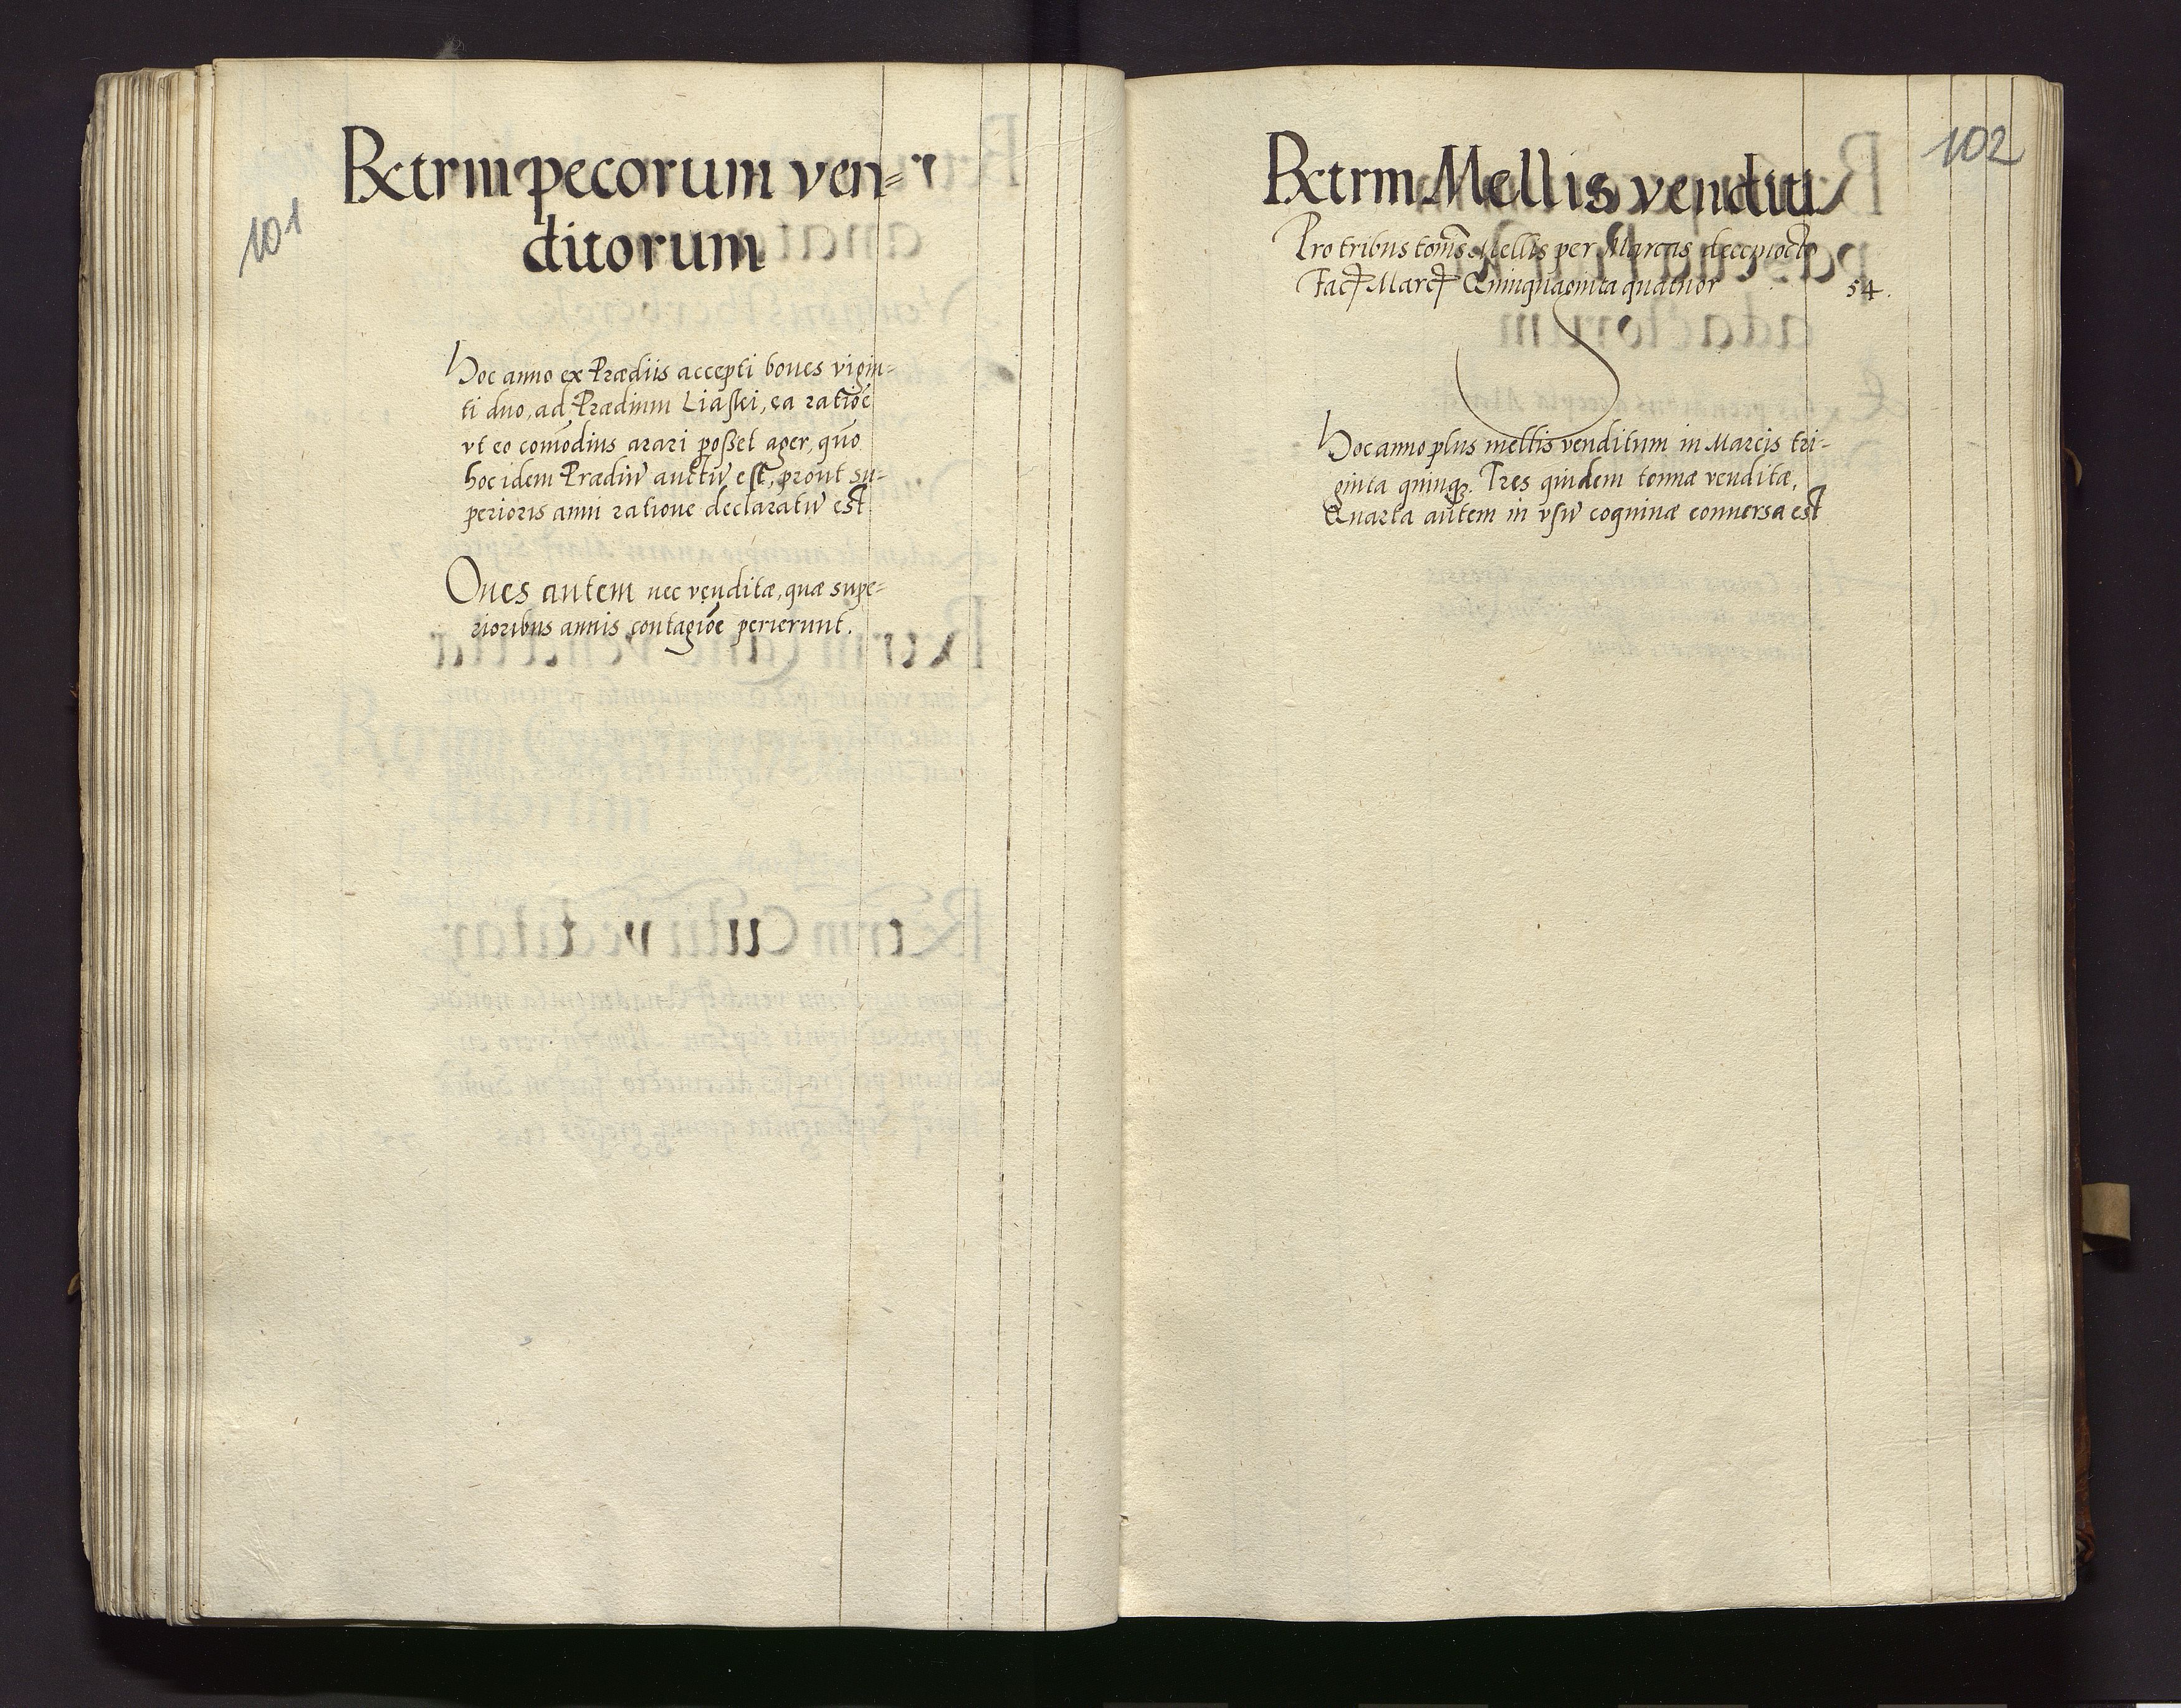 101
Rctrm pecorum ven=
ditorum
Hoc anno ex Prædiis accepti boues vigin=
ti duo, ad Prædium Liaski, ea ratiōe
vt eo com̄odius arari poßet ager, quō
hoc idem Prædiū auctū est, prout su-
perioris anni ratione declaratū est
Oues autem nec venditæ, quæ supe=
rioribus annis contagiōe perierunt.
102
Rctrm Mellis venditi
Pro tribus ton̄is Mellis per Marcas decemocto
Fact Marcꝭ Quinquaginta quatuor 54.
Hoc anno plus mellis venditum in Marcis tri-
ginta quinqꝫ. Tres quidem tonnæ venditæ,
Quarta autem in vsū coquinæ conuersa est